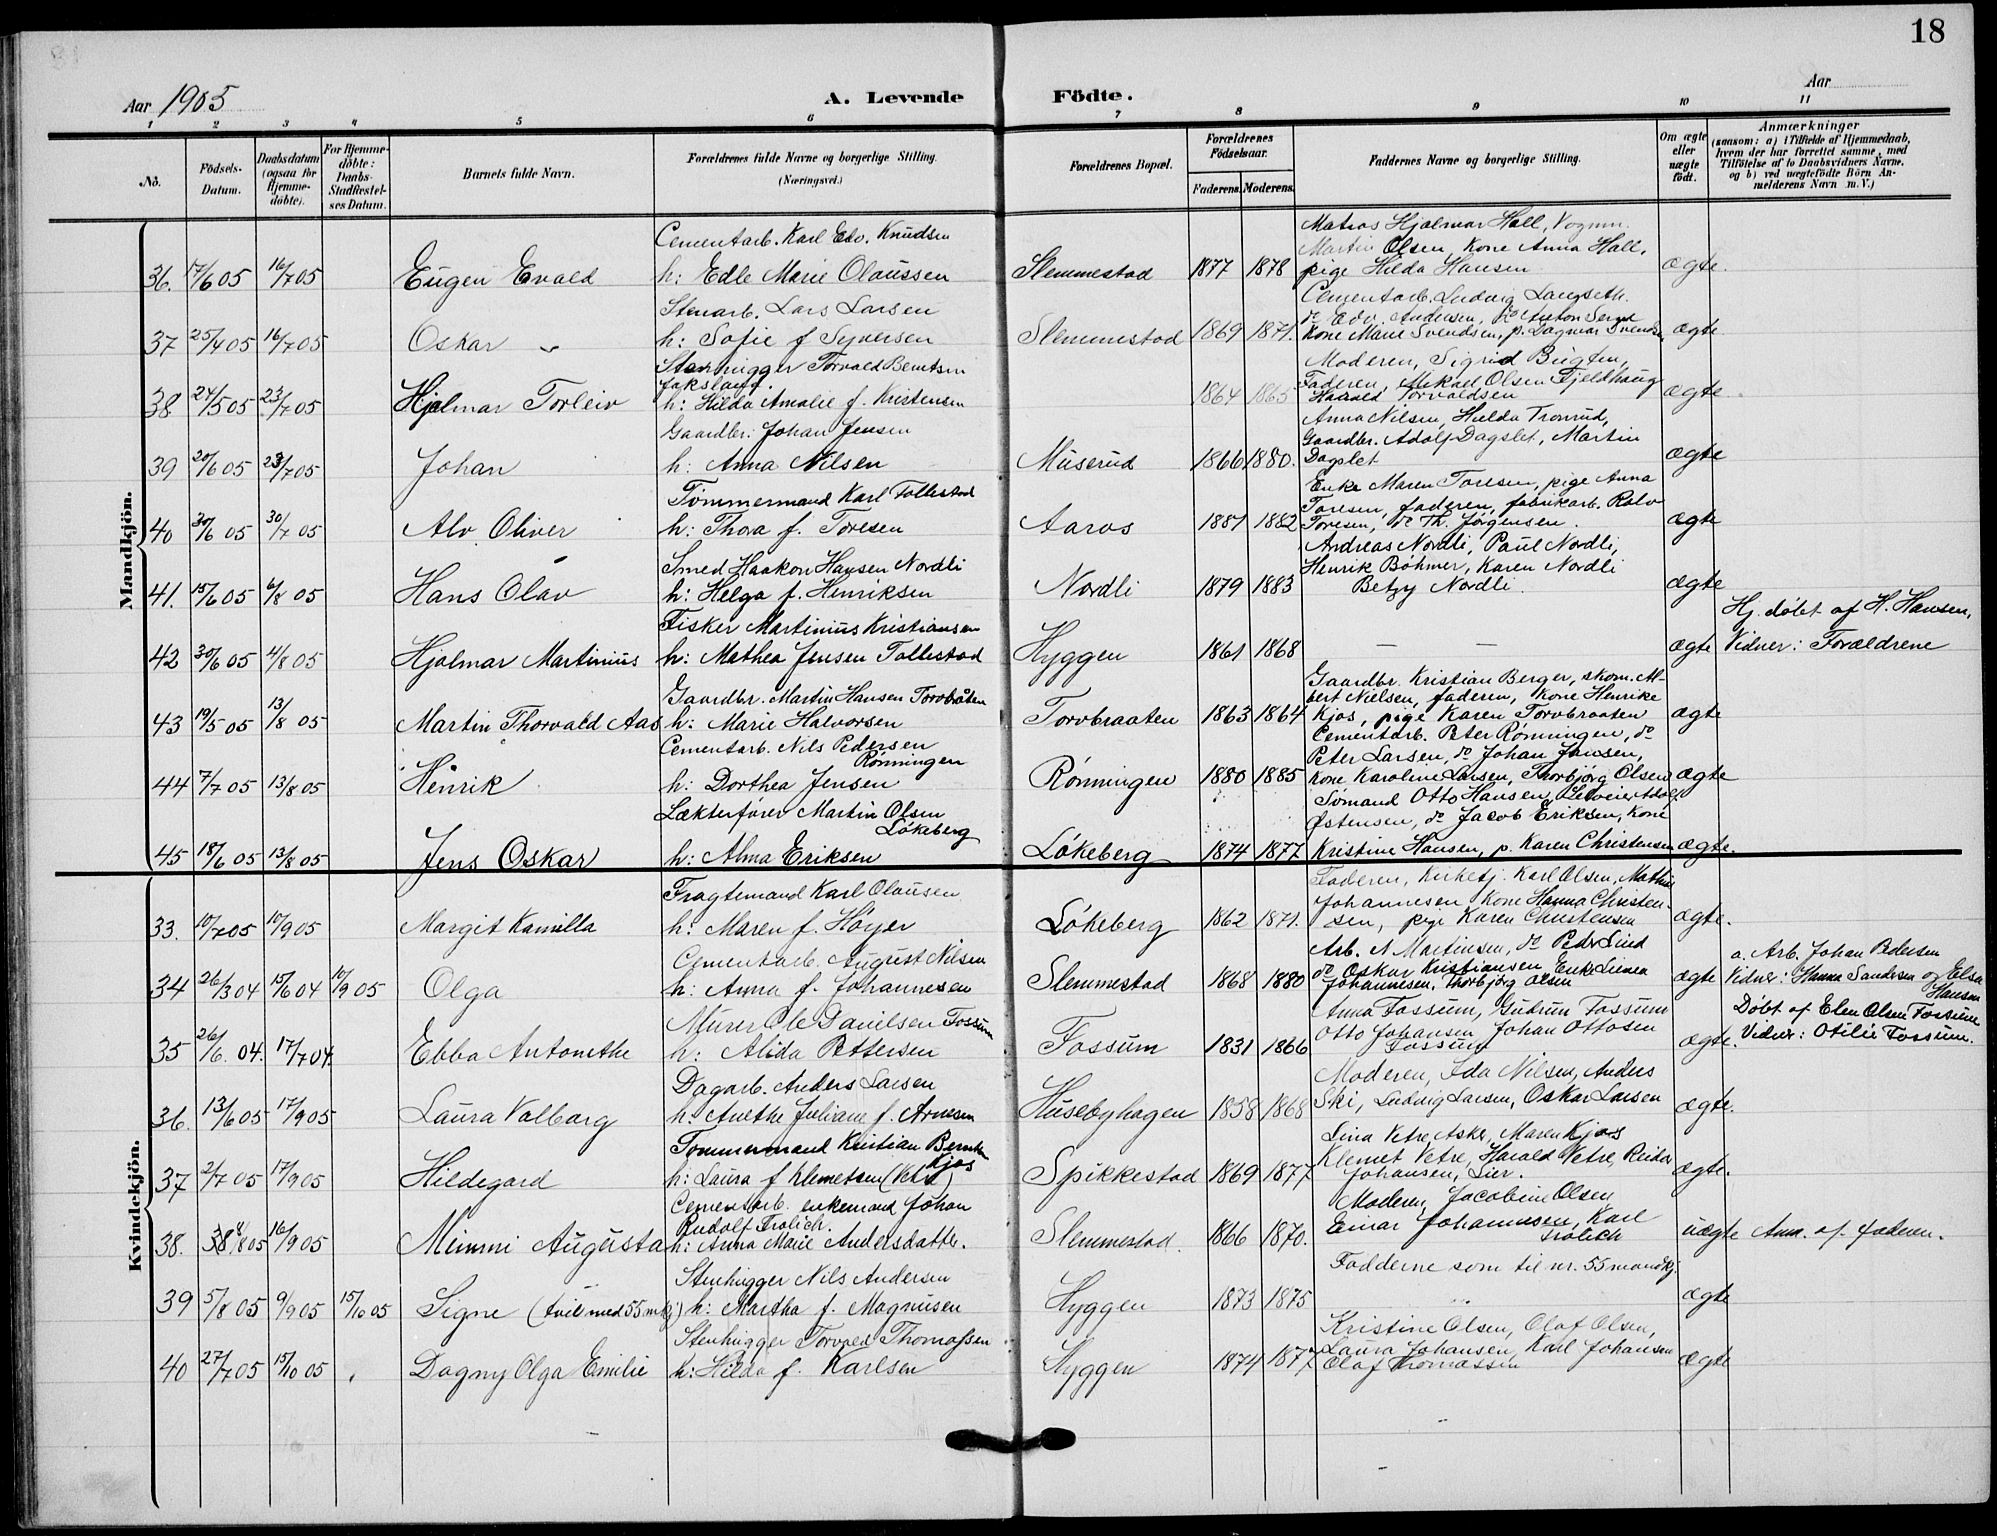 18
Aar 1905
A. Levende Födte.
Aar
1 2 3 4 5 6 7 8 9 10 11
No.
Födsels-Datum.
Daabsdatum (ogsaa for Hjemme-döbte).
For Hjemme-döbte: Daabs-Stadfæstel-ses Datum.
Barnets fulde Navn.
Forældrenes fulde Navne og borgerlige Stilling. (Næringsvei.)
Forældrenes Bopæl.
Forældrenes Födselsaar.
Faderens. Moderens.
Faddernes Navne og borgerlige Stilling.
Om ægte eller uægte födt.
Anmærkninger
(saasom: a) i Tilfælde af Hjemmedaab, hvem der har forrettet samme, med Tilföielse af to Daabsvidners Navne. og b) ved uægtefödte Börn An-melderens Navn m. V.)
Mandkjön.
Cementarb. Karl Edv. Knudsen
Matros Hjalmar Hall, Vognm.
Martin Olsen, Kone Anna Hall,
36. 17/6 05 16/7 05 Eugen Evald h: Edle Marie Olaussen Slemmestad 1877 1878 pige Hilda Hansen ægte.
Stenarb. Lars Larsen
Cementarb. Ludvig Langseth.
do Edv. Andersen, do Anton Svend
37 25/4 05 16/7 05 Oskar h: Sofie f Syversen Slemmestad 1869 1871. Kone Marie Svendsen, p. Dagmar Svendsen ægte
Stenhugger Torvald Berntsen
Moderen, Sigrid Bugten,
Faderen, Mikael Olsen Fjeldhaug
38 24/5 05 23/7 05 Hjalmar Torleiv h: Hilda Amalie f. Kristensen 1864 1865 Harald Torvaldsen ægte
Gaardbr. Johan Jensen
Anna Nilsen, Hulda Tronrud,
Gaardbr. Adolf Dagslet, Martin
39 20/6 05 23/7 05 Johan h: Anna Nilsen Muserud 1866 1880. Dagslet ægte
Tömmermand Karl Tollestad
Enke Maren Toresen, pige Anna
Toresen, faderen, fabrikarb. Ralv
40 30/6 05 30/7 05 Alv Oliver h: Thora f. Toresen Aaros 1881 1882 Toresen, do Th. Jörgensen. ægte
Smed Haakon Hansen Nordli
Andreas Nordli, Paul Nordli,
Henrik Böhmer, Karen Nordli
41. 15/6 05 6/8 05 Hans Olav h: Helga f. Henriksen Nordli 1879 1883 Betzy Nordli. ægte
Fisker Martinius Kristiansen
Hj. döbt af H. Hansen,
42 30/6 05 4/8 05 Hjalmar Martinius h: Mathea Jensen Tollestad Hyggen 1861 1868 — — ægte Vidner: Forældrene
Gaardbr. Martin Hansen Torvbråten
Gaardbr. Kristian Berger, skom. Al-
bert Nielsen, faderen, Kone Henrike
43 19/5 05 13/8 05 Martin Thorvald Aas h: Marie Halvorsen Torvbraaten 1863 1864 Kjos, pige Karen Torvbraaten ægte
Cementarb. Nils Pedersen Rönningen
Cementarb. Peter Rönningen, do
Peter Larsen, do Johan Jansen,
44 7/7 05 13/8 05 Henrik h: Dorthea Jensen Rönningen 1880 1885 Kone Karoline Larsen, Thorbjörg Olsen ægte
Lækterförer Martin Olsen Lökeberg
Sömand Otto Hansen,
Östensen, do Jacob Eriksen, Kone
45 18/6 05 13/8 05 Jens Oskar h: Alma Eriksen Lökeberg 1874 1877 Kristine Hansen, p. Karen Christensen ægte.
Kvindekjön.
Fragtemand Karl Olausen
Faderen, Kirketj. Karl Olsen, Mathis
Johannesen Kone Hanna Christen-
33. 10/7 05 10/9 05 Margit Kamilla h: Maren f. Höyer Lökeberg 1862 1871. sen, pige Karen Christensen ægte.
Cementarb. August Nilsen
Arb. N Martinsen, do Peder Lind
do Oskar Kristiansen Enke
a. Arb. Johan Pedersen
34 26/3 04 15/6 04 10/9 05 Olga h: Anna f. Johannesen Slemmestad 1868 1880 Johannesen, Thorbjörg Olsen ægte Vidner: Hanna Sandersen og Elsa Hansen
Murer Ole Danielsen Fossum
Anna Fossum, Gudrun Fossum
Otto Johansen Johan Ottosen
Döbt af Elen Olsen Fossum
35 26/6. 04. 17/7 04. Ebba Antonethe h: Alida Pettersen Fossum 1831 1866 Fossum ægte. Vidner: Otilie Fossum.
Dagarb. Anders Larsen
Moderen, Ida Nilsen, Anders
36. 13/6 05 17/9 05 Laura Valborg h: Anethe Juliane f. Arnesen Husebyhagen 1858 1868 Ski, Ludvig Larsen, Oskar Larsen ægte.
Tömmermand Kristian Berntsen Kjos
Lina Vetre, Asker, Maren Kjos
Klemet Vetre, Harald Vetre, Reidar
37 2/7 05 17/9 05 Hildegard h: Laura f Klemetsen (Vetre) Spikkestad 1869 1877 Johansen, Lier. ægte.
Cementarb. enkemand Johan
Rudolf Frolich.
Moderen, Jacobine Olsen
38. 4/8 05 16/9 05 Mimmi Augusta h: Anna Marie Andersdatter. Slemmestad. 1866 1870. Einar Johannesen, Karl Frolich uægte Anm. af faderen.
Stenhugger Nils Andersen
Fadderne som til nr. 55 mandkj.
39 5/8 05 9/9 05 15/10 05 Signe (tvil. med 55 mkj) h: Martha f. Magnusen Hyggen 1873 1875 ægte
Stenhugger Torvald Thomassen
Kristine Olsen, Olaf Olsen,
Laura Johansen, Karl Johansen
40 27/7 05 15/10 05 Dagny Olga Emilie h: Hilda f. Karlsen Hyggen 1874 1877 Olaf Thomassen ægte